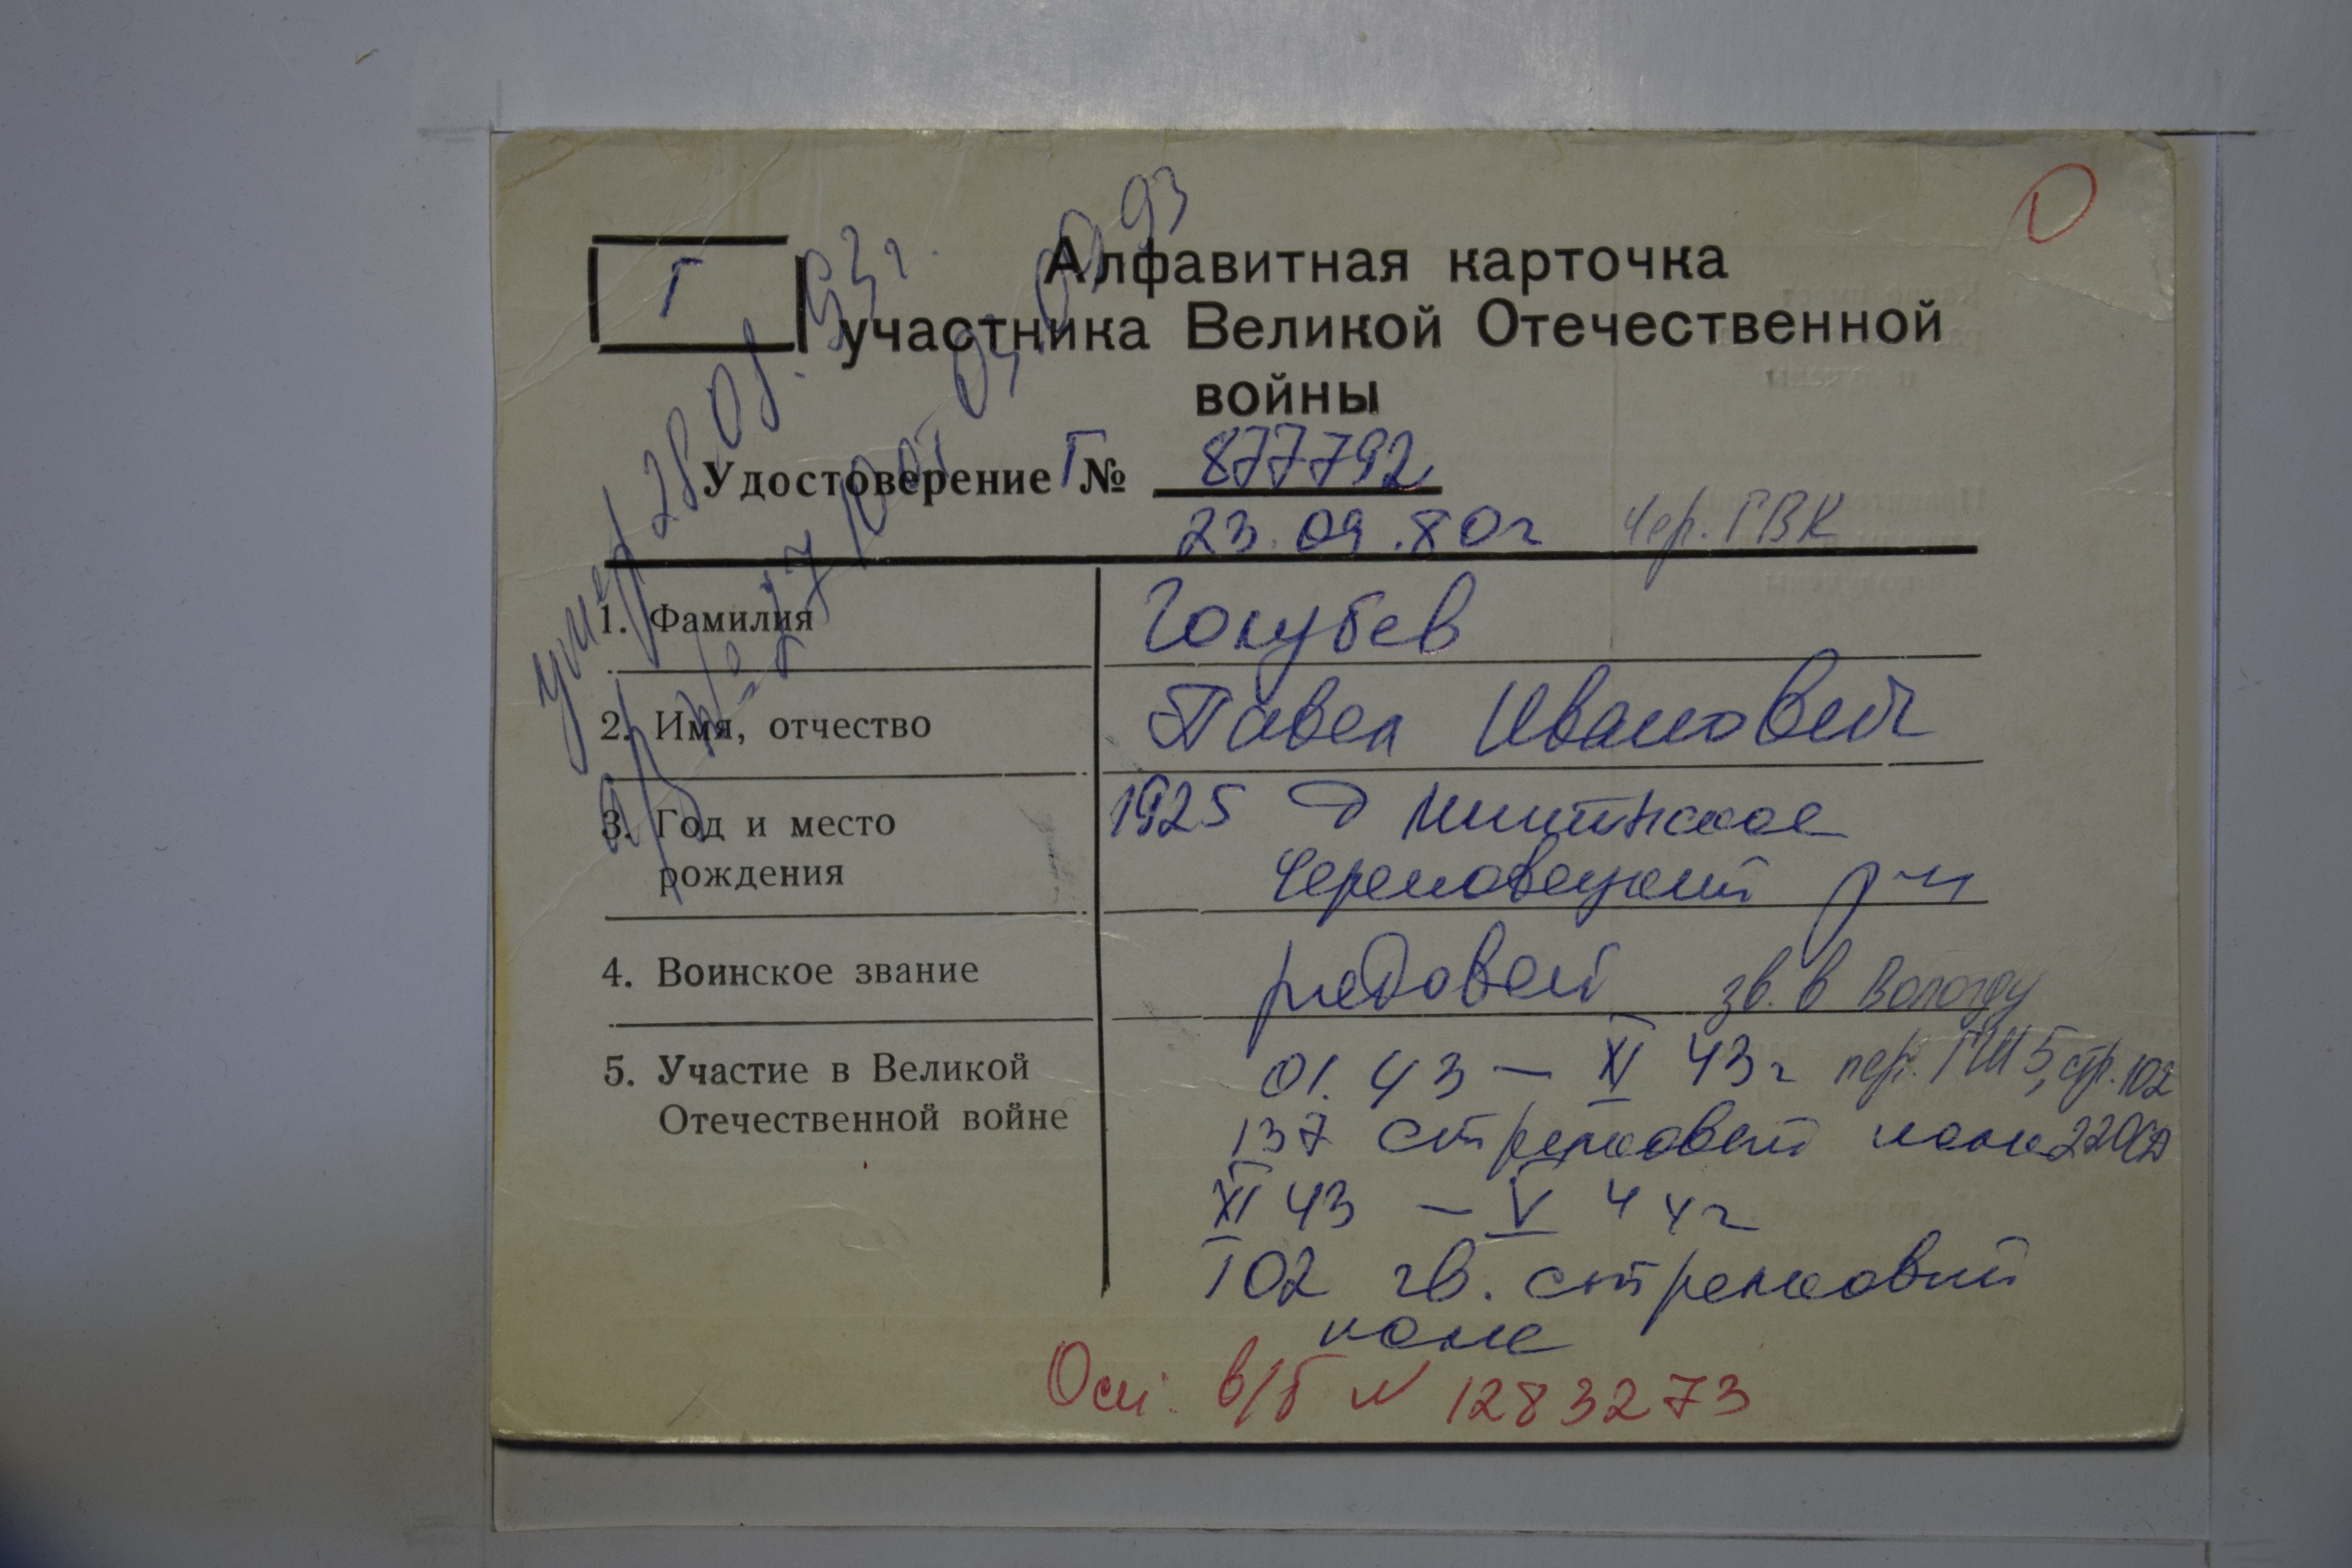 Г
Алфавитная карточка
участника Великой Отечественной
войны
Удостоверение Г № 877792
23.09.80г Чер. ГВК
умер 28.08.93г.
1. Фамилия Голубев
2. Имя, отчество Павел Иванович
3. Год и место 1925 д
рождения Череповецкий р-н
4. Воинское звание рядовой зв. в Вологду
5. Участие в Великой 01.43 – XI 43г пер. ГШ 5, стр. 102
Отечественной войне 137 стрелковый полк 220СД
XI 43 – V 44г
102 гв. стрелковый
полк
Осн: в/б N 1283273